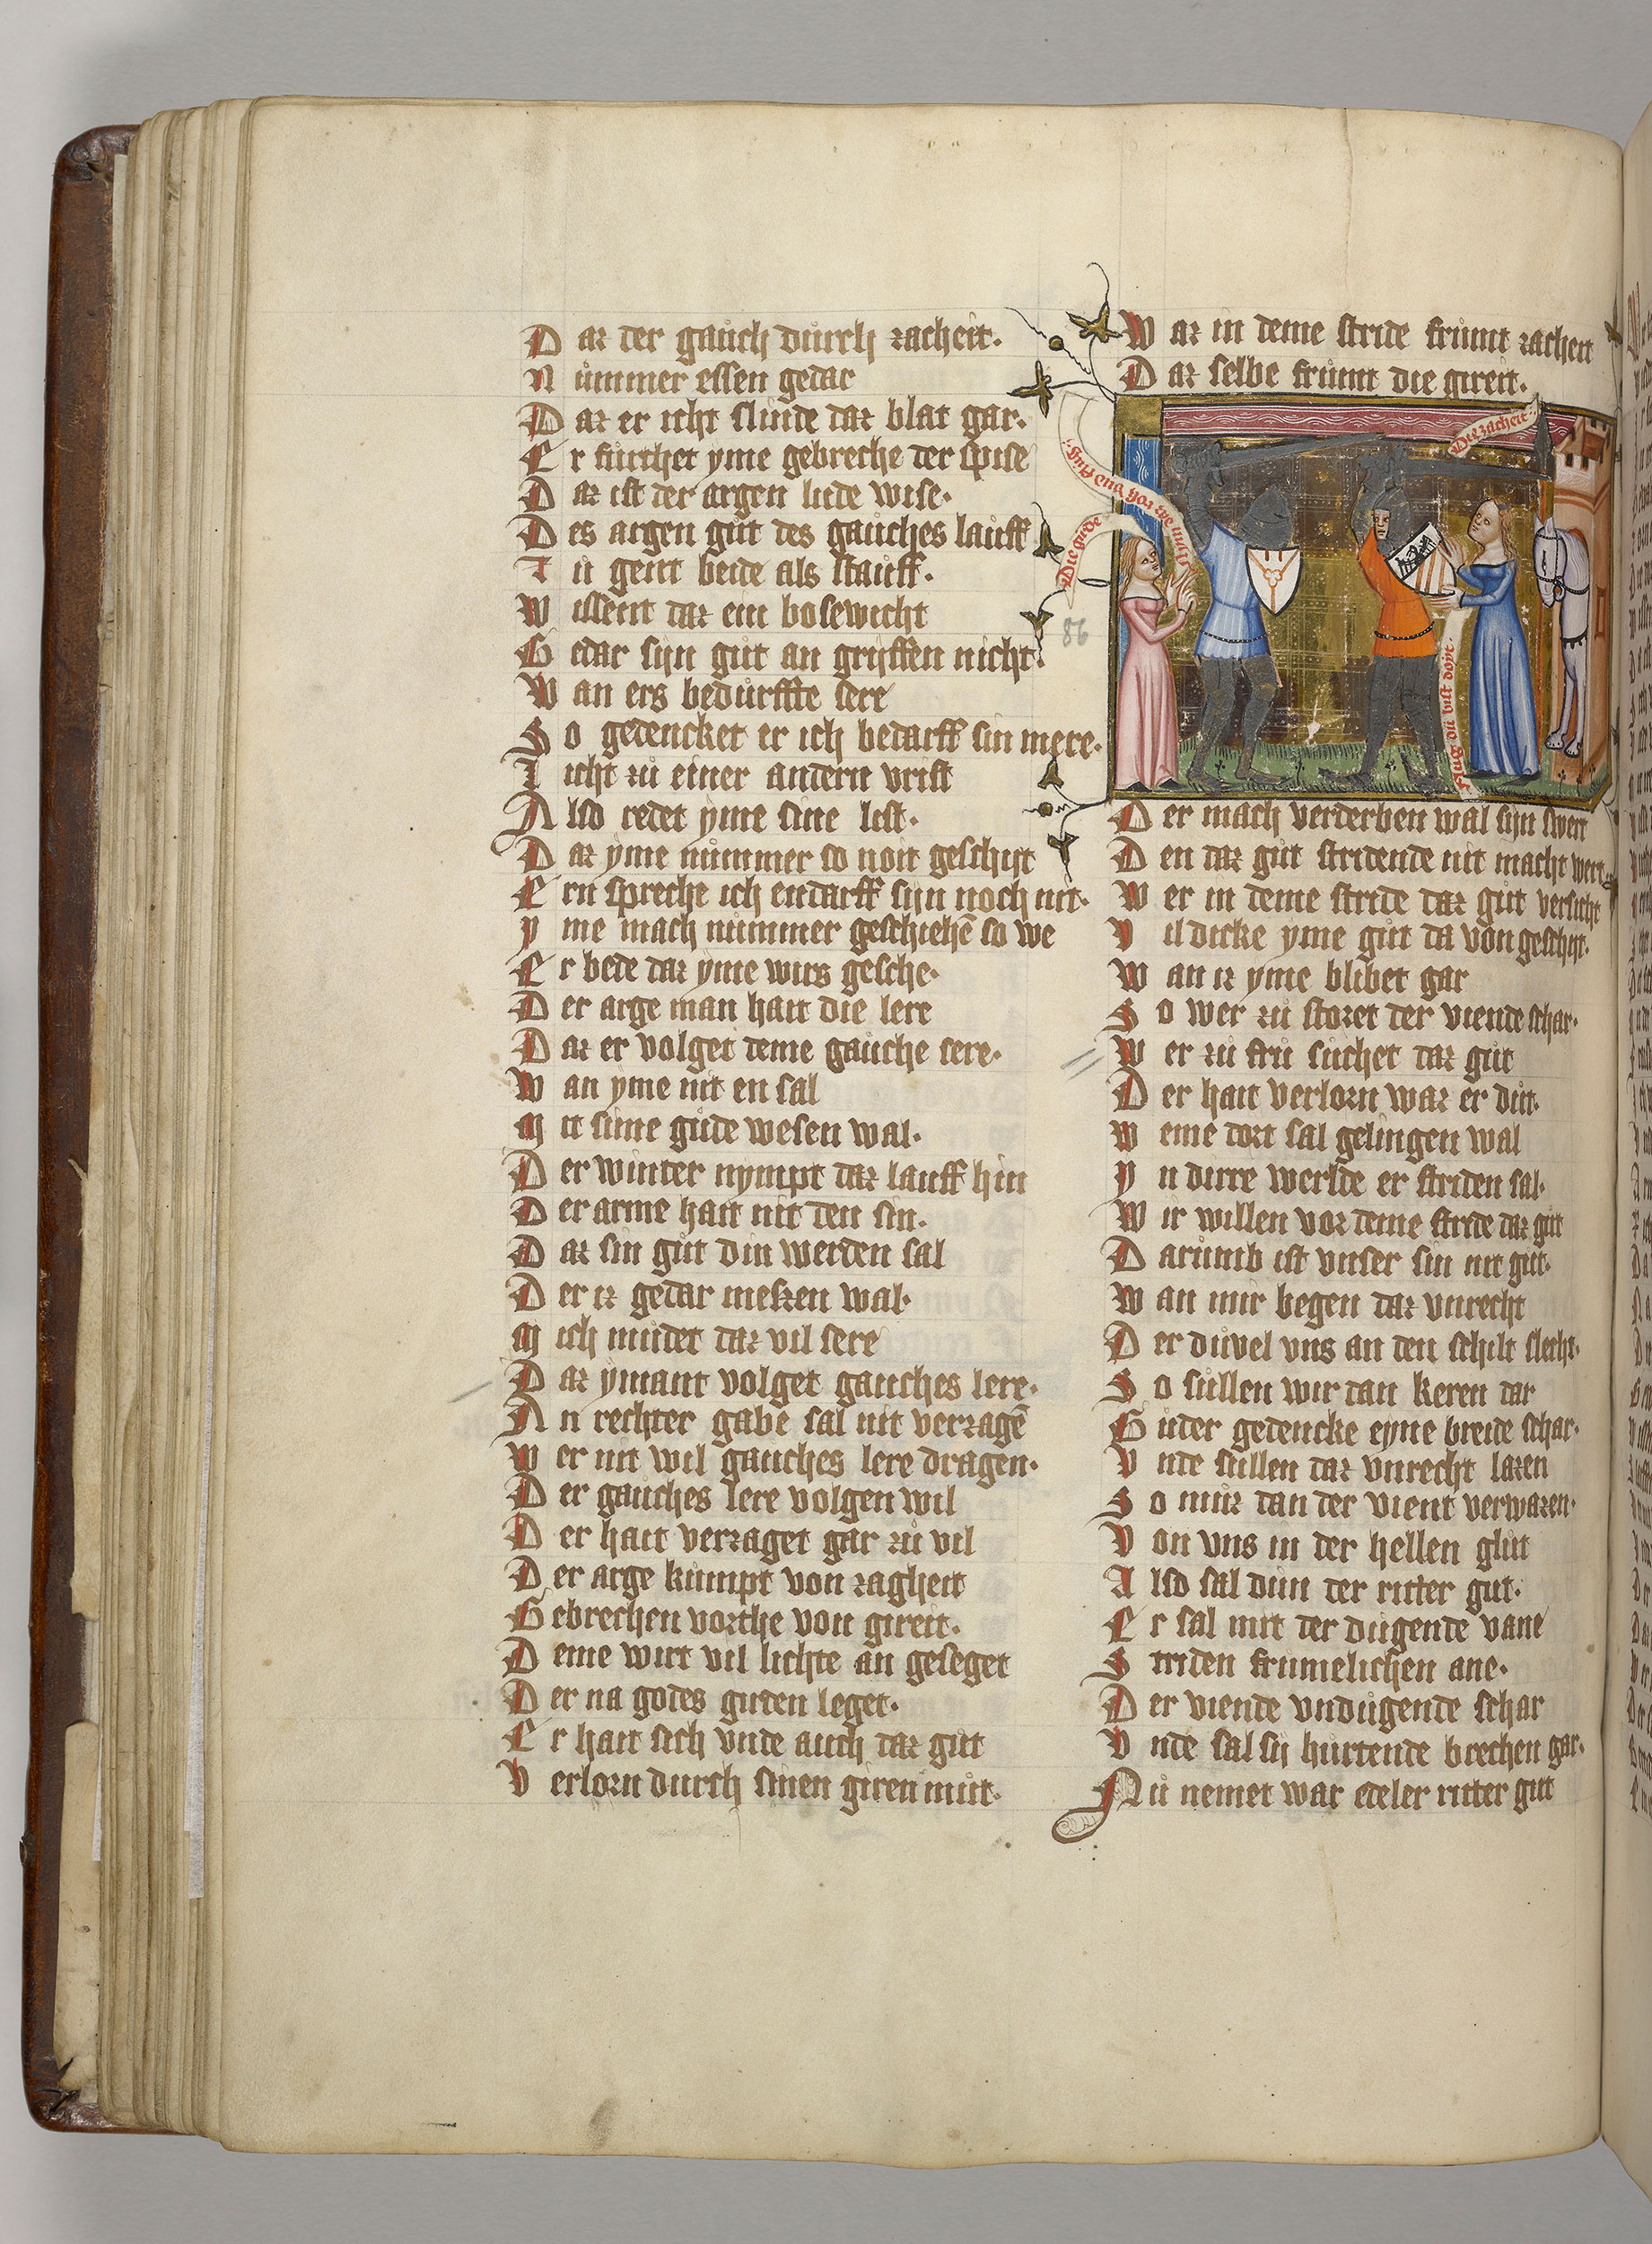 Dar der gauch durch zacheit.
Nummer essen gedar
Dar er icht slinde dar blat gar.
Er furthet yme gebreche der spise
Dar ist der argen lude wise.
Des argen gůt des gauches lauff
Zů geut beide als stauff.
Wissent dar ein bosewicht
Gedar sijn gůt an grijffen nicht.
Wan ers bedůrffte sere
So gedencket er ich bedarff sin mere.
Licht zů einer andern vrist
Also redet yme sine list.
Dar yme nůmmer so noit geschijt
Ern spreche ich endarff sijn noch nit.
Yme mach nůmmer geschiehē so we
Er bede dar yme wirs gesche.
Der arge man hait die lere
Dar er volget deme gauche sere.
Wan yme nit en sal
Mit sime gůde wesen wal.
Der winter nympt dar lauff hin
Der arme hait nit den sin.
Dar sin gůt din werden sal
Der iz gedar meszen wal.
Mich můdet dar vil sere
Dar ymant volget gauches lere.
An rechter gabe sal nit verzagē
Wer nit wil gauches lere dragen.
Der gauches lere volgen wil
Der hait verzaget gar zů vil
Der arge kůmpt von zagheit
Gebrechen vorthe von gireit.
Deme wirt vil lichte an geseget
Der na godes guten leget.
Er hait sich vnde auch dar gůt
Verlorn durch sinen giren můt.
War in deme stride frůmt zacheit
Dar selbe frůmt die gireit.
Die gůde
Nim war vor dir vnd slag
Die zacheit
slag dů vist doit
86
Der mach verderben wal sijn swert
Den dar gůt stridende nit macht wert.
Wer in deme stride dar gůt versicht
Vil dicke yme gůt da von geschijt.
Wan iz yme blibet gar
So wer zů storet der viende schar.
Wer zů frů sůchet dar gůt
Der hait verlorn war er důt.
Weme dort sal gelingen wal
Yn dirre werlde er striden sal.
Wir willen vor deme stride dar gůt
Darůmb ist vnser sin nit gůt.
Wan mir begen dar vnrecht
Der důvel vns an den schilt slecht.
So sůllen wir dan keren dar
Gůder gedencke eyne breide schar.
Vnde sůllen dar vnrecht lazen
So můz dan der vient verwazen.
Von vns in der hellen glůt
Also sal důn der ritter gůt.
Er sal mit der důgende vane
Striden frůmelichen ane.
Der viende vndůgende schar
Vnde sal sij hůrtende brechen gar.
Nů nemet war edeler ritter gůt